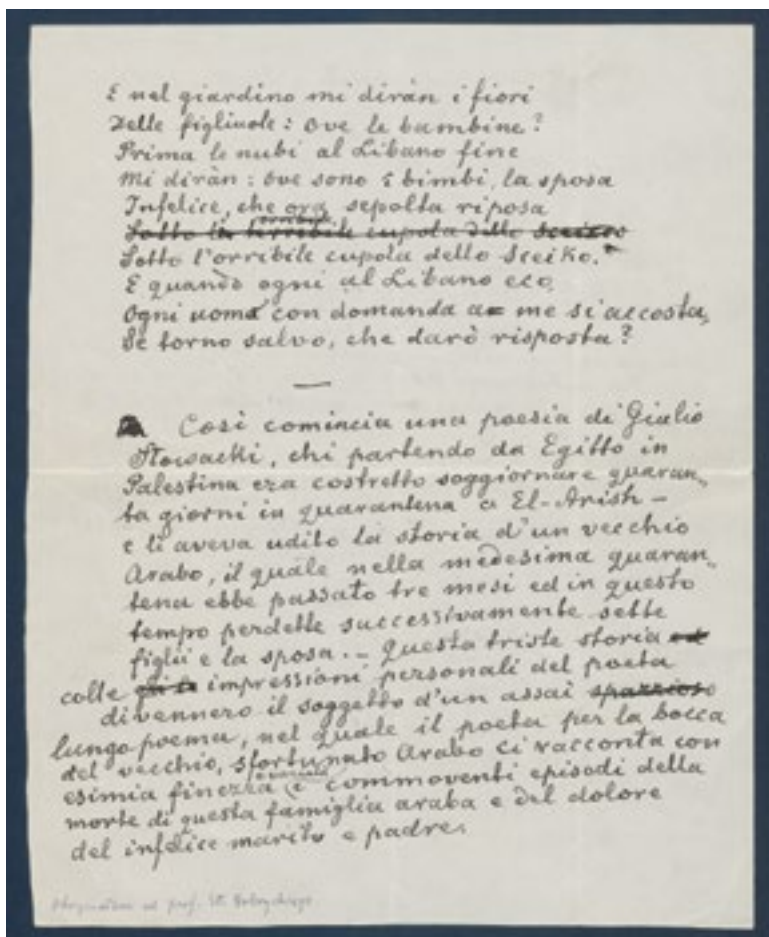 E nel giardino mi diràn i fiori
Delle figliuole: Ove le bambine?
Prima le nubi al Libano fine
Mi diràn: Ove sono i bimbi, la sposa
Infelice, che ora sepolta riposa
Sotto la terribile cupola dello Sceicco
Sotto l'orribile cupola dello Sceiko.
E quando ogni al Libano eco,
Ogni uomo con domanda a me si accosta,
Se torno salvo, che darò risposta?
—
Così comincia una poesia di Giulio
Słowacki, chi partendo da Egitto in
Palestina era costretto soggiornare quaran„
ta giorni in quarantena a El-Arish —
e lì aveva udito la storia d'un vecchio
Arabo, il quale nella medesima quaran„
tena ebbe passato tre mesi ed in questo
tempo perdette successivamente sette
figlii e la sposa. — Questa triste storia ed
colle impressioni personali del poeta
divennero il soggetto d'un assai spazzioso
lungo poema, nel quale il poeta per la bocca
del vecchio, sfortunato Arabo ci racconta con
esimia finezza i commoventi episodi della
morte di questa famiglia araba e del dolore
del infelice marito e padre.
Otrzymałem od prof. St.